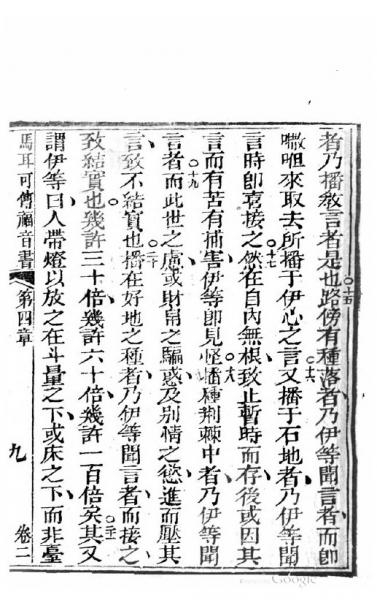 者乃播敎言者是也○十五路傍有種落者乃伊等聞言者而卽
㘔呾來取去所播于伊心之言○十六又播于石地者乃伊等聞
言時卽喜接之○十七然在自內無根致止暫時而存後或因其
言而有苦有捕害伊等卽見怪○十八播種荆棘中者乃伊等聞
言者○十九而此世之慮或財帛之騙惑及別情之慾進而壓其
言致不結實也○二十播在好地之種者乃伊等聞言者而接之
致結實也幾許三十倍幾許六十倍幾許一百倍矣○二一其又
謂伊等曰人帶燈以放之在斗量之下或床之下而非臺
馬耳可傳福音書 第四章 九 卷二
Google